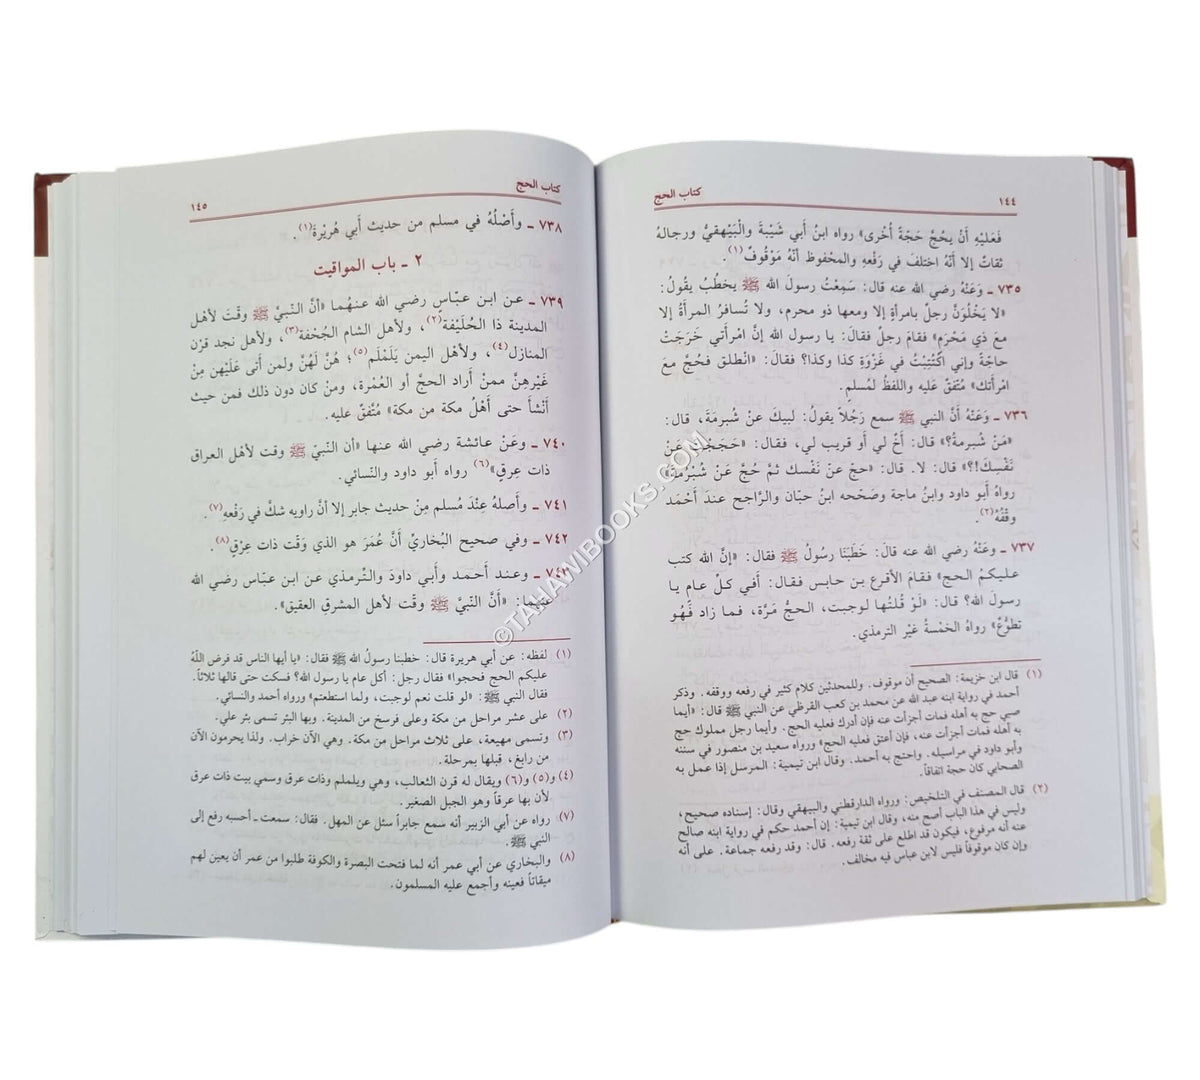 ١٤٤
كتاب الحج
فَعَليْهِ أَنْ يحُجَّ حَجَّةً أُخْرى» رواه ابنُ أبي شَيْبَةَ والْبَيْهقيُّ ورجالهُ
ثقاتٌ إلا أنّهُ اختلفَ في رَفْعهِ والمحْفوظ أنّهُ مَوْقُوفٌ(١).
٧٣٥ ـ وَعَنْهُ رضي الله عنه قال: سَمِعْتُ رسولَ الله ﷺ يخطُبُ يقُولُ:
«لا يَخْلُوَنَّ رجلٌ بامرأةٍ إلا ومعها ذو محرم، ولا تُسافرُ المرأةُ إلا
معَ ذي مَحْرَمٍ» فقامَ رجلٌ فقالَ: يا رسول الله إنَّ امْرأتي خَرَجَتْ
حاجّةً وإني اكْتُتِبْتُ في غَزْوَةِ كذا وكذا؟ فقالَ: «انْطلق فحُجَّ مع
امْرأتك» مُتّفقٌ عَليه واللفظُ لمُسلمٍ.
٧٣٦ ـ وَعَنْهُ أنَّ النبي ﷺ سمع رَجُلاً يقولُ: لبيكَ عنْ شُبرمَةَ، قال:
«مَنْ شُبرمةُ؟» قال: أخٌ لي أو قريب لي، فقال: «حَجَجْتَ عَنْ
نَفْسِكَ؟!» قال: لا. قال: «حجّ عَنْ نَفْسك ثمَّ حُجَّ عَنْ شُبْرُمةَ»
رواهُ أبو داود وابنُ ماجة وصَحّحه ابنُ حبّان والرّاجح عندَ أَحْمَد
وقْفُهُ(٢).
٧٣٧ ـ وعَنْهُ رضي الله عنه قال: خَطَبَنَا رسُولُ الله ﷺ فقال: «إنَّ الله كتب
عليكمُ الحج» فقامَ الأقرع بن حابس فقال: أفي كلِّ عام يا
رسولَ الله؟ قال: «لَوْ قُلتُها لوجبت، الحجُّ مَرَّة، فما زاد فَهُو
تطوُّعٌ» رواهُ الخمْسةُ غيْر الترمذي.
(١) قال ابن خزيمة: الصحيح أن موقوف. وللمحدثين كلام كثير في رفعه ووقفه. وذكر
أحمد في رواية ابنه عبد الله عن محمد بن كعب القرظي عن النبي ﷺ قال: «أيما
صبي حج به أهله فمات أجزأت عنه فإن أدرك فعليه الحج. وأيما رجل مملوك حج
به أهله فمات أجزأت عنه، فإن أعتق فعليه الحج» ورواه سعيد بن منصور في سننه
وأبو داود في مراسيله. واحتج به أحمد. وقال ابن تيمية: المرسل إذا عمل به
الصحابي كان حجة اتفاقاً.
(٢) قال المصنف في التلخيص: ورواه الدارقطني والبيهقي وقال: إسناده صحيح،
وليس في هذا الباب أصح منه، وقال ابن تيمية: إن أحمد حكم في رواية ابنه صالح
عنه أنه مرفوع، فيكون قد اطلع على ثقة رفعه. قال: وقد رفعه جماعة. على أنه
وإن كان موقوفاً فليس لابن عباس فيه مخالف.
كتاب الحج
١٤٥
٧٣٨ ـ وأَصْلُهُ في مسلم من حديث أبي هُريْرةَ(١).
٢ ـ باب المواقيت
٧٣٩ ـ عن ابن عبّاسٍ رضي الله عنهُما «أنَّ النّبيَّ ﷺ وقّتَ لأهل
المدينة ذا الحُلَيْفة(٢)، ولأهل الشام الجُحْفة(٣)، ولأهل نجد قرْن
المنازل(٤)، ولأهل اليمن يَلَمْلَم(٥)؛ هُنَّ لَهُنَّ ولمن أتى عَلَيْهن مِنْ
غَيْرهِنَّ ممنْ أراد الحجَّ أو العُمْرة، ومنْ كان دون ذلك فمن حيث
أَنْشأ حتى أهْلُ مكة من مكة» مُتَّفقٌ عليه.
٧٤٠ ـ وعَنْ عائشة رضي الله عنها «أن النّبيَّ ﷺ وقت لأهْل العراق
ذات عِرقٍ»(٦) رواه أبو داود والنّسائي.
٧٤١ ـ وأَصلهُ عنْدَ مُسلم مِنْ حديث جابر إلا أنَّ راويه شكَّ في رَفْعهِ(٧).
٧٤٢ ـ وفي صحيح البُخاريِّ أنَّ عُمَرَ هو الذي وَقّت ذات عِرْقٍ(٨).
٧٤٣ ـ وعند أَحمد وأبي داودَ والتّرمذي عن ابن عبّاس رضي الله
عنهما: «أَنَّ النّبيَّ ﷺ وقّت لأهل المشرق العقيق».
(١) لفظه: عن أبي هريرة قال: خطبنا رسولُ الله ﷺ فقال: «يا أيها الناس قد فرض اللّهُ
عليكم الحج فحجوا» فقال رجل: أكل عام يا رسول الله؟ فسكت حتى قالها ثلاثاً.
فقال النبي ﷺ: «لو قلت نعم لوجبت، ولما استطعتم» ورواه أحمد والنسائي.
(٢) على عشر مراحل من مكة وعلى فرسخ من المدينة. وبها البئر تسمى بئر علي.
(٣) وتسمى مهيعة، على ثلاث مراحل من مكة. وهي الآن خراب. ولذا يحرمون الآن
من رابغ، قبلها بمرحلة.
(٤) و(٥) و(٦) ويقال له قرن الثعالب، وهي ويلملم وذات عرق وسمي بيت ذات عرق
لأن بها عرقاً وهو الجبل الصغير.
(٧) رواه عن أبي الزبير أنه سمع جابراً سئل عن المهل. فقال: سمعت ـ أحسبه رفع إلى
النبي ﷺ.
(٨) والبخاري عن أبي عمر أنه لما فتحت البصرة والكوفة طلبوا من عمر أن يعين لهم
ميقاتاً فعينه وأجمع عليه المسلمون.
©TAHAWIBOOKS.COM